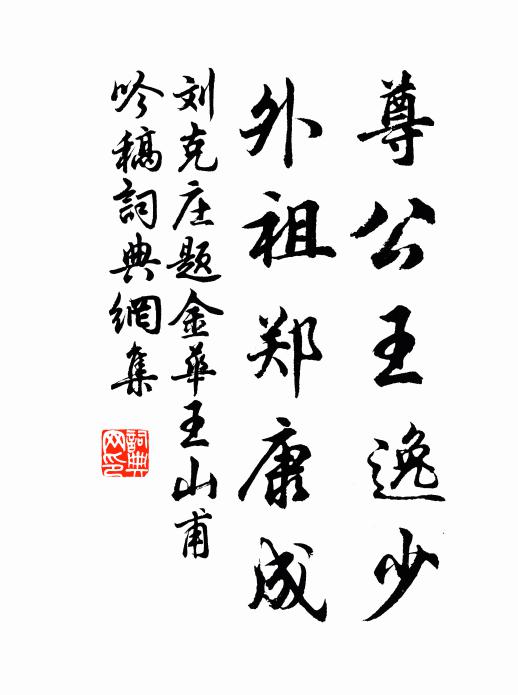 尊公王逸少
外祖郑康成
刘克庄题金华王山甫
吟稿词典網集
詞典
网印